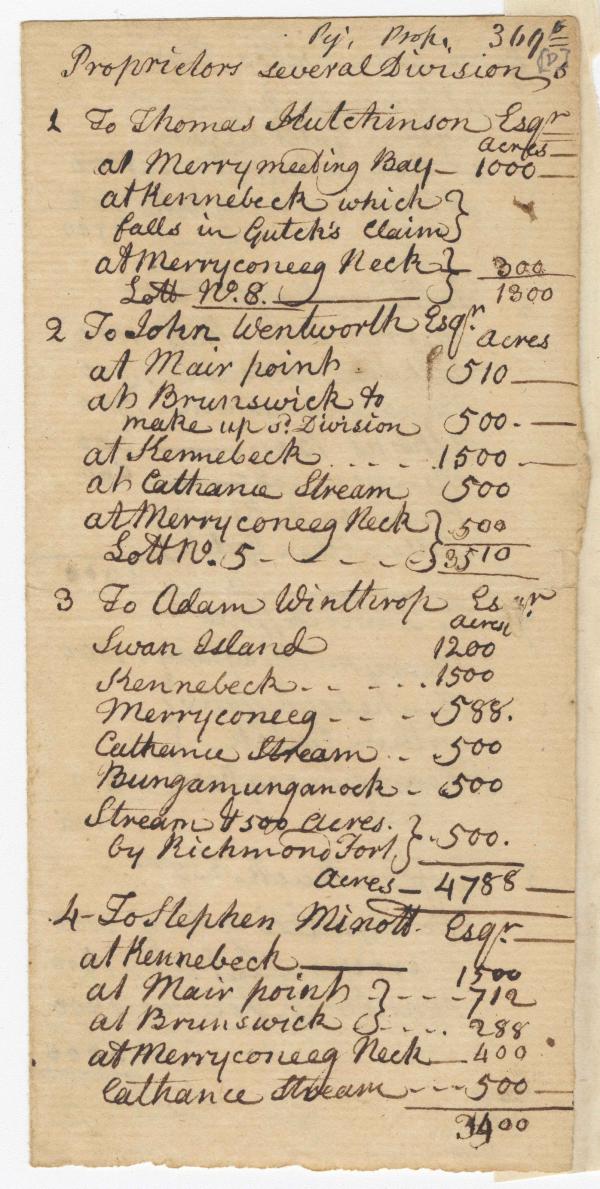 Pej. Prop. 369
Proprietors several Division
1 To Thomas Hutchinson Esqr
acres
at Merrymeeting Bay - 1000 -
at Kennebeck which }
falls in Gutch's Claim }
at Merryconeeg Neck } 300
Lott No. 8. 1300
2 To John Wentworth Esqr.
acres
at Mair point 510 -
at Brunswick to
make up sd. Division 500. -
at Kennebeck . . . . 1500 -
at Cathance Stream 500
at Merryconeeg Neck } 500
Lott No. 5 - - - - - } 3510
3 To Adam Winthrop Esqr
acres
Swan Island 1200
Kennebeck - - - - . 1500
Merryconeeg - - - 588.
Cathance Stream - 500
Bungamunganock - 500
Stream & 500 acres. }
by Richmond Fort } 500.
Acres - 4788 -
4 - To Stephen Minott Esqr
at Kennebeck 1500
at Mair point } - - - 712
at Brunswick } . . . . 288
at Merryconeeg Neck 400
Cathance Stream - - - 500 -
3400